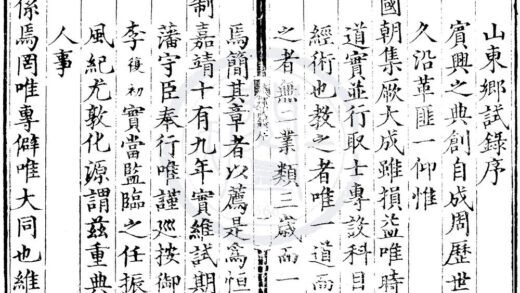 山東鄉試錄序
賓興之典創自成周歷世
久沿革匪一仰惟
國朝集厥大成雖損益唯時
道實並行取士專設科目
經術也教之者唯一道而
之者無二業類三歲而一
焉簡其章者以薦是為恒
制嘉靖十有九年實維試期
藩宇臣奉行唯謹巡按御
李復初實當監臨之任振
風紀尤敦化源謂茲重典
人事
係焉罔唯專僻唯大同也維